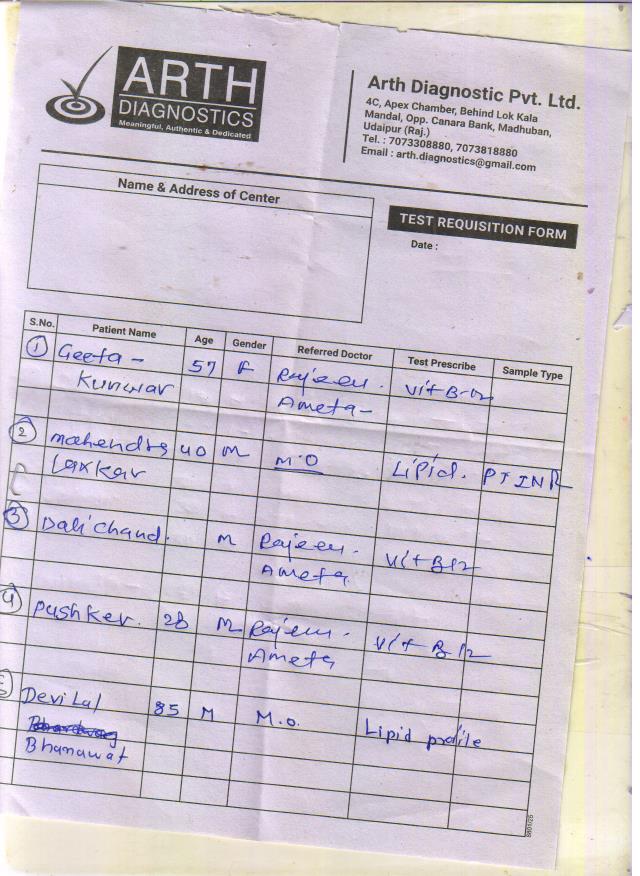 ARTH
DIAGNOSTICS
Meaningful, Authentic & Dedicated
Arth Diagnostic Pvt. Ltd.
4C, Apex Chamber, Behind Lok Kala
Mandal, Opp. Canara Bank, Madhuban,
Udaipur (Raj.)
Tel. : 7073308880, 7073818880
Email : arth.diagnostics@gmail.com
Name & Address of Center
TEST REQUISITION FORM
Date :
S.No. Patient Name Age Gender Referred Doctor Test Prescribe Sample Type
1 Geeta - 57 F Rajeev. Vit B-12
Kunwar Ameta-
2 Mahendra 40 M M.O Lipid. PT INR
Laxkar
3 Dalichand. M Rajeev. Vit B12
Ameta
4 Pushker. 28 M Rajeev. Vit B12
Ameta
5 Devi Lal 85 M M.O. Lipid profile
Bhanawat